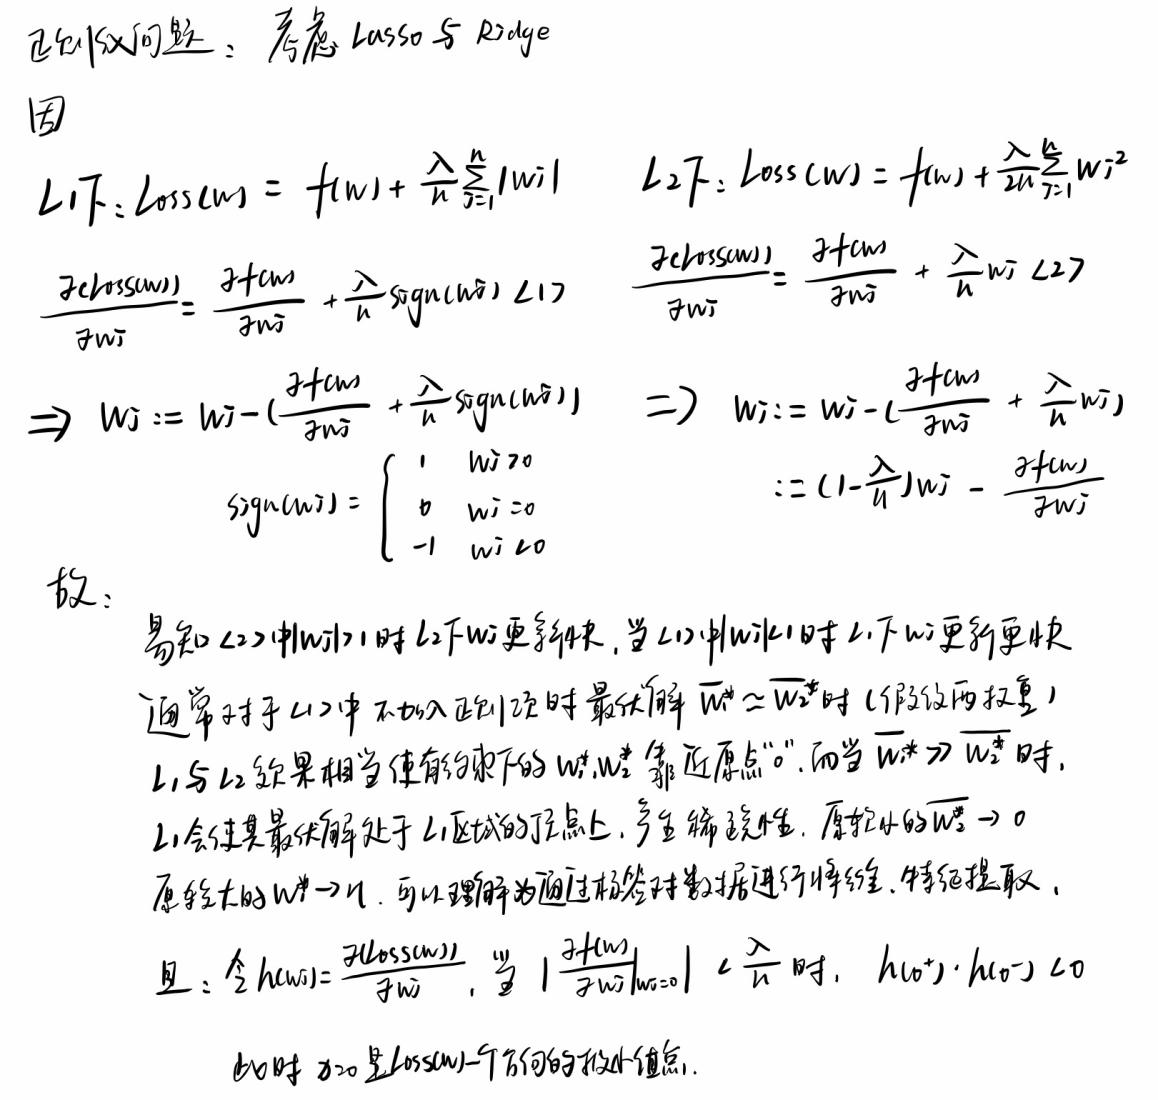 正则化问题：考虑 Lasso 与 Ridge
因
L1下：Loss(w) = f(w) + λ/n Σ_{j=1}^{n} |wj|
L2下：Loss(w) = f(w) + λ/2n Σ_{j=1}^{n} wj²
∂(Loss(w))/∂wj = ∂f(w)/∂wj + λ/n sign(wj) <1>
∂(Loss(w))/∂wj = ∂f(w)/∂wj + λ/n wj <2>
⇒ wj := wj - (∂f(w)/∂wj + λ/n sign(wj))
⇒ wj := wj - (∂f(w)/∂wj + λ/n wj)
sign(wj) = { 1 wj>0
0 wj=0
-1 wj<0
:= (1-λ/n)wj - ∂f(w)/∂wj
故：
易知<2>中|wj|>1时L2下wj更新快，当<1>中|wj|<1时L1下wj更新更快
通常对于<1>中不加入正则项时最优解 w̅1* ≃ w̅2* 时（假设两权重）
L1与L2效果相当使有约束下的w1*,w2*靠近原点"0"，而当 w̅1* >> w̅2* 时，
L1会使其最优解处于L1区域的顶点上，产生稀疏性，原较小的w̅2* → 0
原较大的w* → η，可以理解为通过标签对数据进行降维，特征提取，
且：令h(wj) = ∂(Loss(w))/∂wj，当 |∂f(w)/∂wj|wj=0| < λ/n 时，h(0⁺)·h(0⁻) < 0
此时 x=0 是Loss(w)一个方向的极小值点.